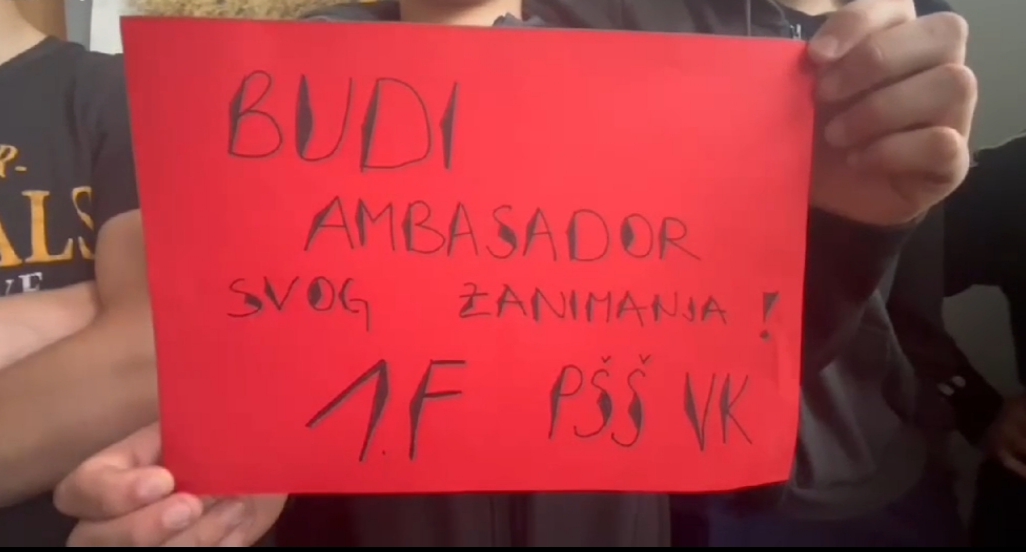 BUDI
AMBASADOR
SVOG ZANIMANJA!
1.F PŠŠ VK
ALS